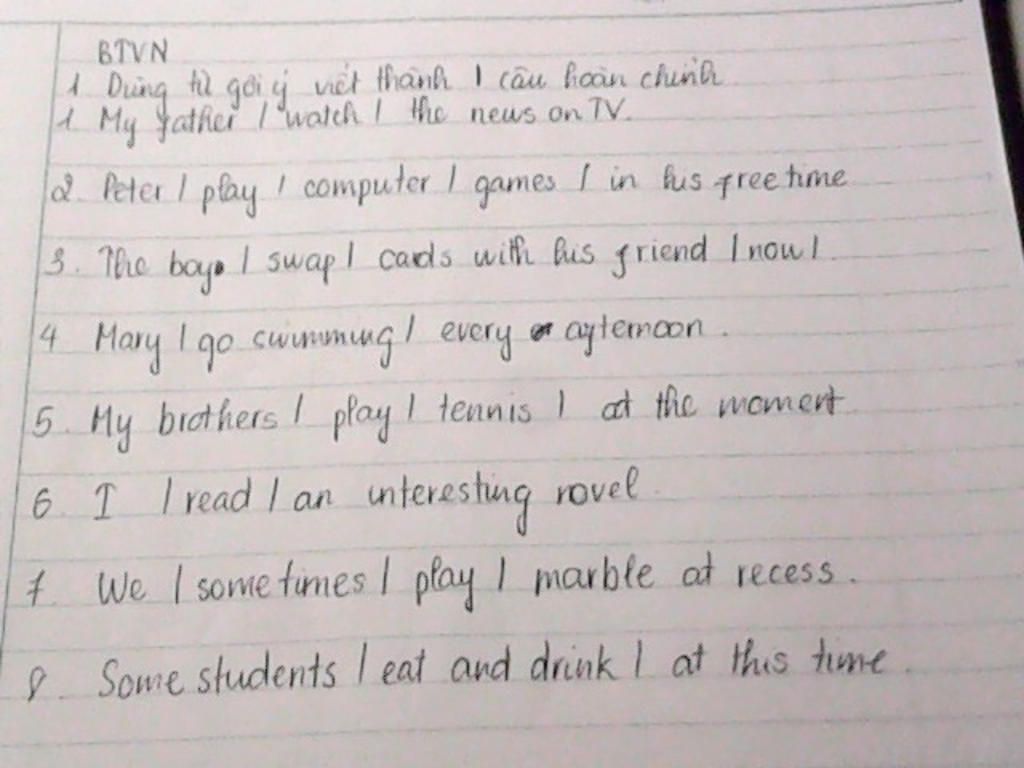 BTVN
1 Dùng từ gợi ý viết thành 1 câu hoàn chỉnh
1 My father / watch / the news on TV.
2. Peter / play / computer / games / in his free time
3. The boy / swap / cards with his friend / now /
4 Mary / go swimming / every afternoon.
5. My brothers / play / tennis / at the moment
6. I / read / an interesting novel.
7. We / sometimes / play / marble at recess.
8. Some students / eat and drink / at this time.